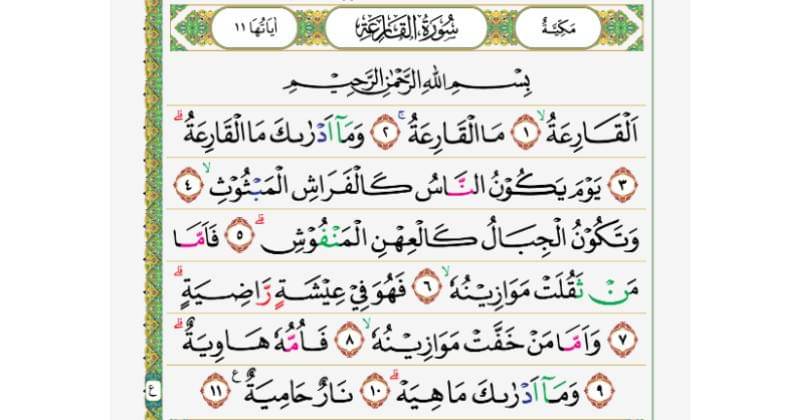 مَكِيَّةٌ سُورَةُ الْقَارِعَةِ اٰيَاتُهَا ١١
بِسْمِ اللهِ الرَّحْمٰنِ الرَّحِيْمِ
اَلْقَارِعَةُ ۙ ١ مَا الْقَارِعَةُ ۚ ٢ وَمَآ اَدْرٰىكَ مَا الْقَارِعَةُ ۗ
٣ يَوْمَ يَكُوْنُ النَّاسُ كَالْفَرَاشِ الْمَبْثُوْثِ ۙ ٤
وَتَكُوْنُ الْجِبَالُ كَالْعِهْنِ الْمَنْفُوْشِ ۗ ٥ فَاَمَّا
مَنْ ثَقُلَتْ مَوَازِيْنُهٗ ۙ ٦ فَهُوَ فِيْ عِيْشَةٍ رَّاضِيَةٍ ۗ
٧ وَاَمَّا مَنْ خَفَّتْ مَوَازِيْنُهٗ ۙ ٨ فَاُمُّهٗ هَاوِيَةٌ ۗ
ع ٩ وَمَآ اَدْرٰىكَ مَا هِيَهْ ۗ ١٠ نَارٌ حَامِيَةٌ ࣖ ١١